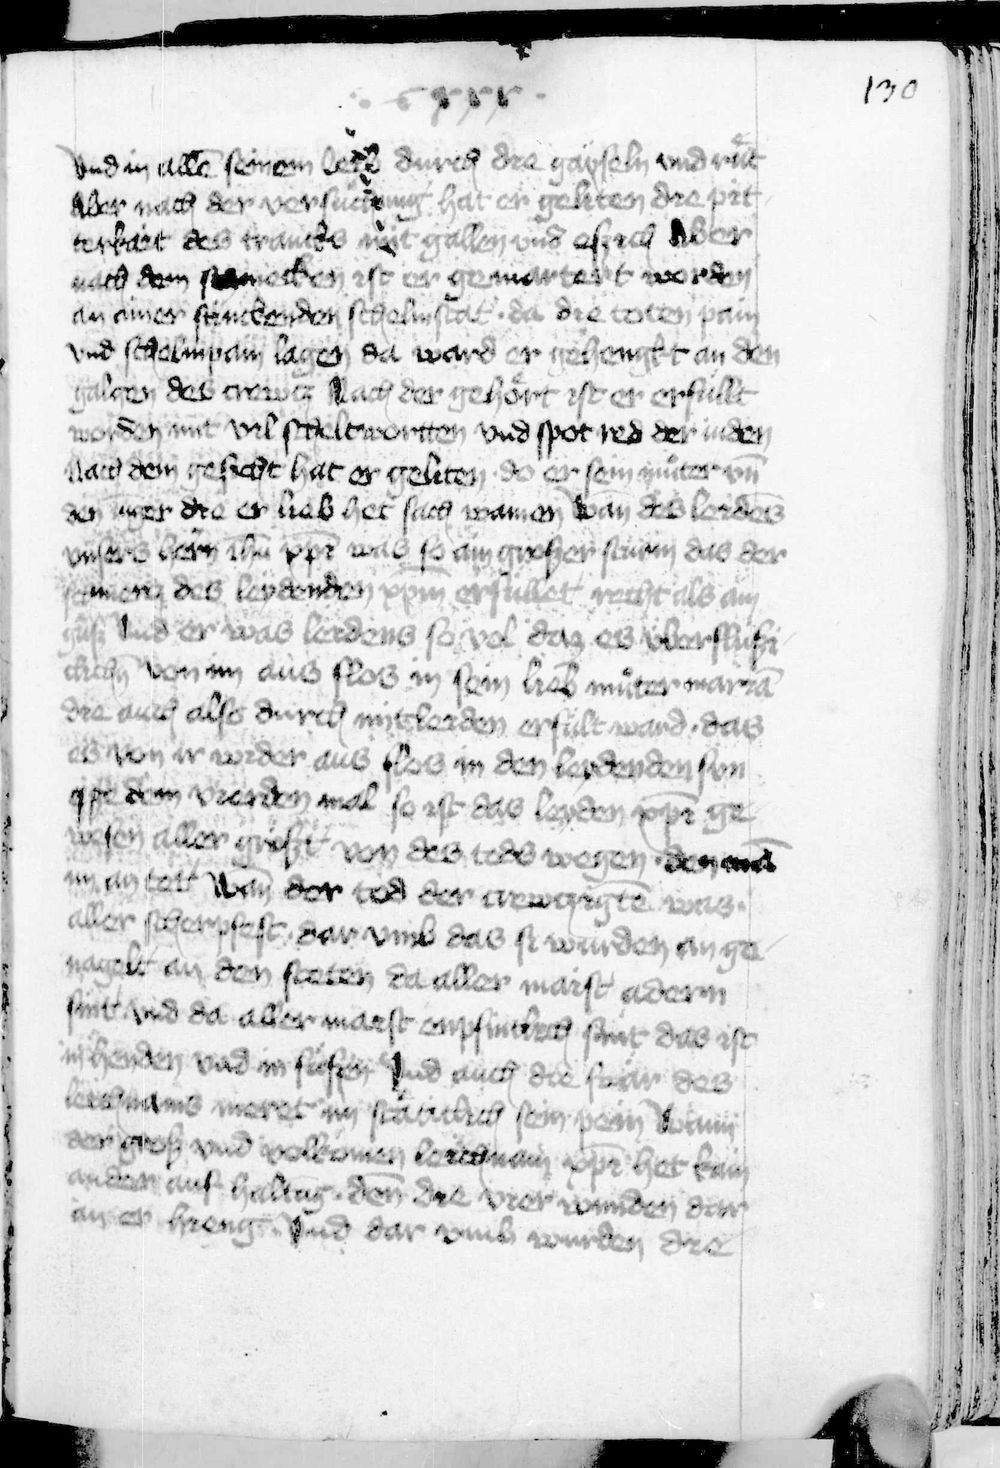 · cxxx ·
130
Vnd in allē seinem leib durch die gayseln vnd růt
Aber nach der versůchung hat er geliten die pit
terkait des trancks mit gallen vnd essich Aber
nach dem smecken ist er gemartert worden
an ainer stinckenden schelmstat · da die toten pain
vnd schelmpain lagen da ward er gehengkt an den
galgen des crewcz Nach der gehört ist er erfüllt
worden mit vil scheltwortten vnd spot red der iuden
Nach dem gesicht hat er geliten · do er sein můter vn̄
den iuger die er lieb het sach wainen Wan̄ des leidens
vnsers hern ihū xpī was so ain grosser sturm das der
smerz des leydenden xpm̄ erfüllet recht als ain
guß Vnd er was leidens so vol daz es vberflüssi
clichn̄ von im aus flos in sein lieb můter mariā
die auch also durch mitleiden erfült ward · das
es von ir wider aus flos in den leydenden sun
Cze dem vierden mal so ist das leyden xpī ge
wesen aller gröst von des tods wegen · den mā
im an tett Wan̄ der tod der crewczigtē was ·
aller scherpfest · dar vmb das si wurden an ge
nagelt an den steten da aller maist adern
sint Vnd da aller maist enpfintlich sint das ist
in henden vnd in füssen Vnd auch die swär des
leichnams meret im stäticlich sein pein Wann
der groß vnd volkomen leichnam xpī het kain
ander auf haltūg · den̄ die vier wunden dar
an er hieng · Vnd dar vmb wurden die